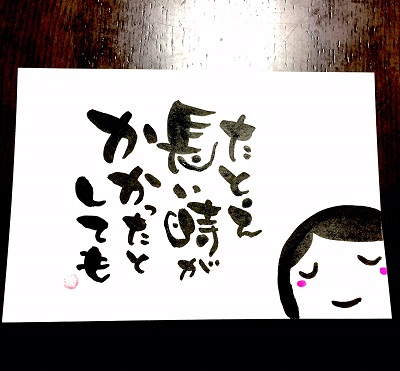 たとえ
長い時が
かかったと
しても